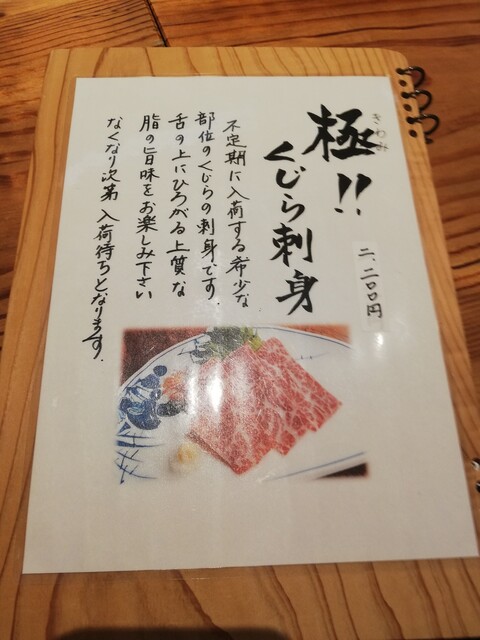 極!!
きわみ
くじら刺身
二、二〇〇円
不定期に入荷する希少な
部位のくじらの刺身です。
舌の上にひろがる上質な
脂の旨味をお楽しみ下さい
なくなり次第 入荷待ちとなります。